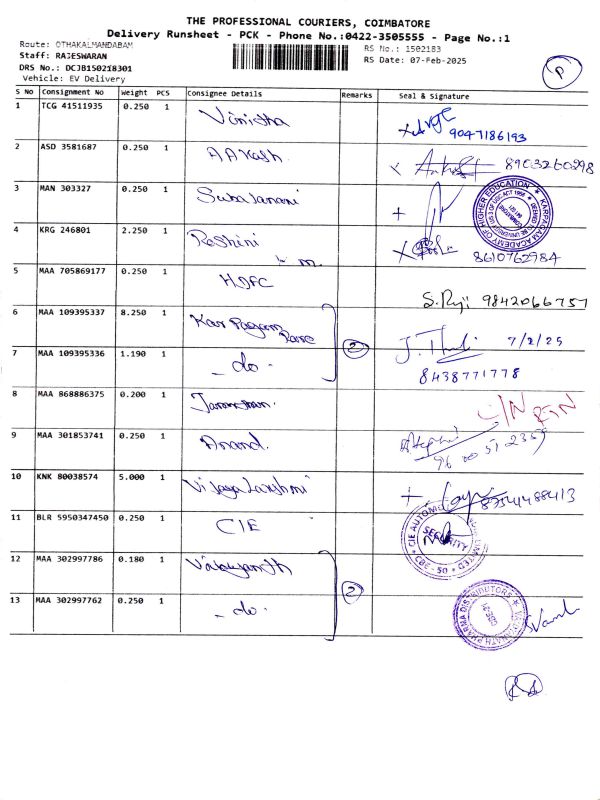 THE PROFESSIONAL COURIERS, COIMBATORE
Delivery Runsheet - PCK - Phone No.:0422-3505555 - Page No.:1
Route: OTHAKALMANDABAM
RS No.: 1502183
Staff: RAJESWARAN
RS Date: 07-Feb-2025
DRS No.: DCJB150218301
Vehicle: EV Delivery
P
S No Consignment No Weight PCS Consignee Details Remarks Seal & Signature
1 TCG 41511935 0.250 1 Vinistha 9047186193
2 ASD 3581687 0.250 1 AAKash 8903260298
3 MAN 303327 0.250 1 Subajanani
KARPAGAM ACADEMY OF HIGHER EDUCATION
4 KRG 246801 2.250 1 Roshini 8610762984
5 MAA 705869177 0.250 1 HDFC S. Raji: 9842066757
6 MAA 109395337 8.250 1 Karpagam 7/2/25
2
7 MAA 109395336 1.190 1 - do - 8438771778
8 MAA 868886375 0.200 1
9 MAA 301853741 0.250 1 Anand.
10 KNK 80038574 5.000 1 Vijaya Lakshmi
11 BLR 5950347450 0.250 1 CIE
SECURITY
12 MAA 302997786 0.180 1
2
13 MAA 302997762 0.250 1 - do -
PHARMA DISTRIBUTORS